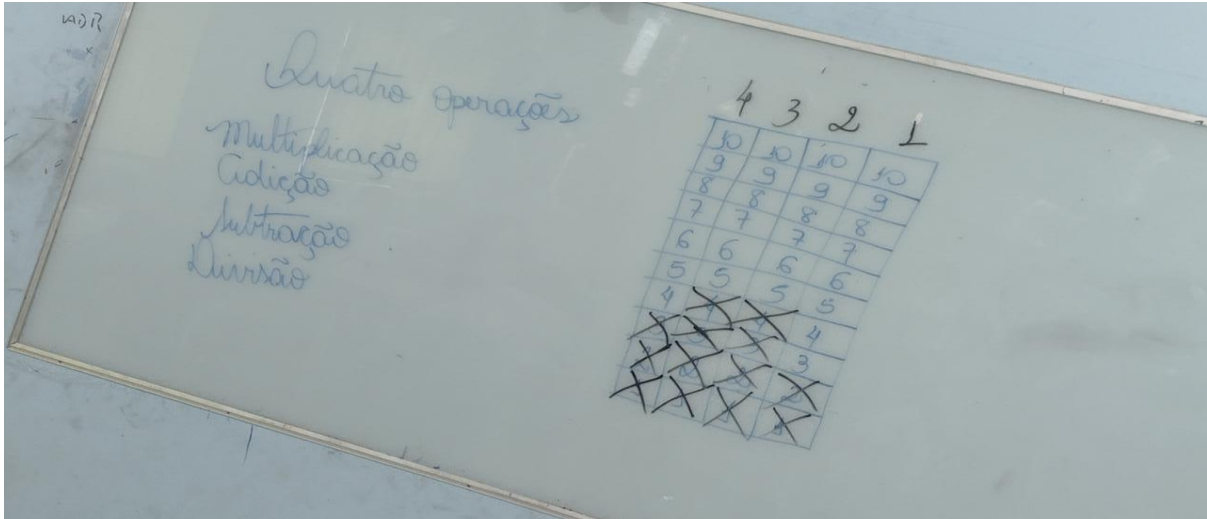 ADR
Quatro operações
Multiplicação
Adição
Subtração
Divisão
4 3 2 1
10 10 10 10
9 9 9 9
8 8 8 8
7 7 7 7
6 6 6 6
5 5 5 5
4 4 4 4
3 3 3 3
2 2 2 2
1 1 1